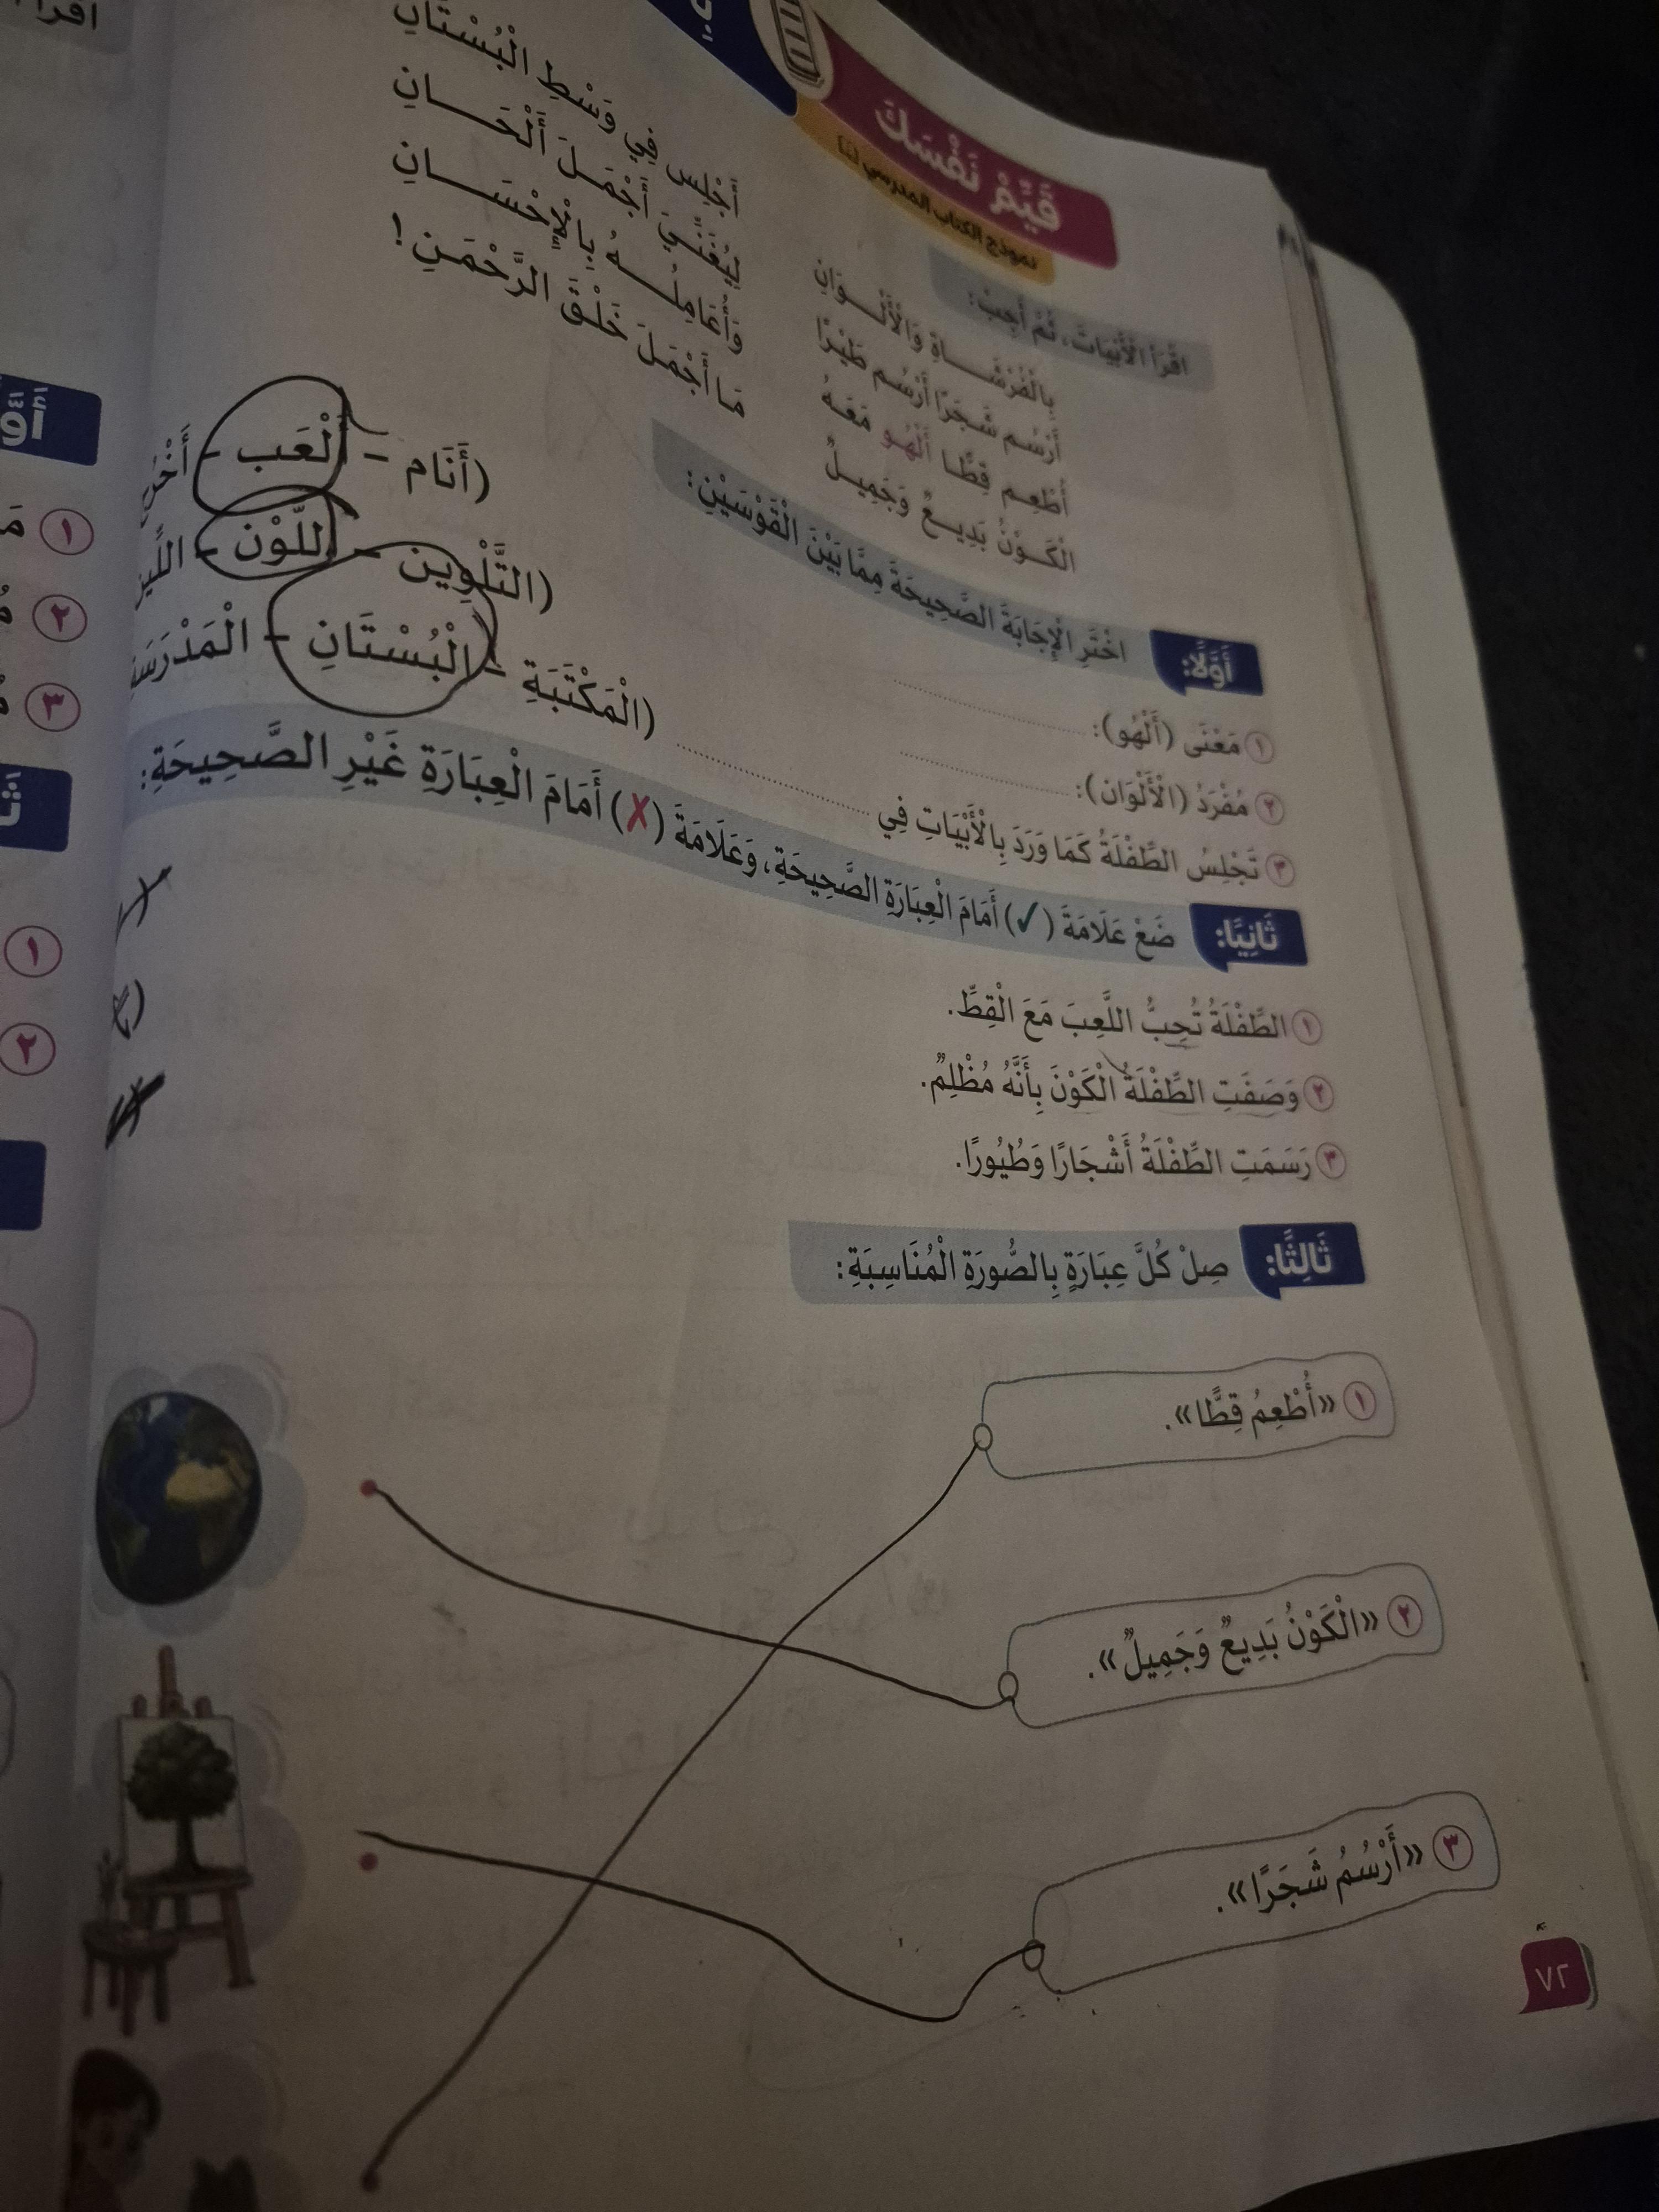 قَيِّمْ نَفْسَكَ
نموذج الكتاب المدرسي
اقْرَأِ الْأَبْيَاتَ، ثُمَّ أَجِبْ:
بِالْفُرْشَــاةِ وَالْأَلْــوَانِ أَجْلِس فِي وَسْطِ الْبُسْتَانِ
أَرْسُم شَجَرًا أَرْسُم طَيْرًا أَجْمَلَ أَلْحَــانِ
أُطْعِم قِطًّـا أَلْهُـو مَعَـهُ وَأُعَامِلُــهُ بِالْإِحْسَــانِ
الْكَـوْنُ بَدِيـعٌ وَجَمِيـلٌ مَا أَجْمَلَ خَلْقَ الرَّحْمَنِ!
أَوَّلًا: اخْتَرِ الْإِجَابَةَ الصَّحِيحَةَ مِمَّا بَيْنَ الْقَوْسَيْنِ:
١ مَعْنَى (أَلْهُو): (أَنَام - أَلْعَب -
٢ مُفْرَدُ (الْأَلْوَان): (التَّلْوِين - اللَّوْن -
٣ تَجْلِسُ الطِّفْلَةُ كَمَا وَرَدَ بِالْأَبْيَاتِ فِي (الْمَكْتَبَةِ - الْبُسْتَانِ -
ثَانِيًا: ضَعْ عَلَامَةَ (✓) أَمَامَ الْعِبَارَةِ الصَّحِيحَةِ، وَعَلَامَةَ (✗) أَمَامَ الْعِبَارَةِ غَيْرِ الصَّحِيحَةِ:
١ الطِّفْلَةُ تُحِبُّ اللَّعِبَ مَعَ الْقِطِّ.
٢ وَصَفَتِ الطِّفْلَةُ الْكَوْنَ بِأَنَّهُ مُظْلِمٌ.
٣ رَسَمَتِ الطِّفْلَةُ أَشْجَارًا وَطُيُورًا.
ثَالِثًا: صِلْ كُلَّ عِبَارَةٍ بِالصُّورَةِ الْمُنَاسِبَةِ:
١ «أُطْعِمُ قِطًّا».
٢ «الْكَوْنُ بَدِيعٌ وَجَمِيلٌ».
٣ «أَرْسُمُ شَجَرًا».
٧٢
١
٢
٣
١
٢